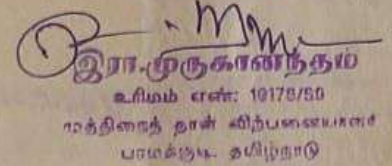 இரா.முருகானந்தம்
உரிமம் எண்: 10178/80
முத்திரைத் தாள் விற்பனையாளர்
பரமக்குடி. தமிழ்நாடு